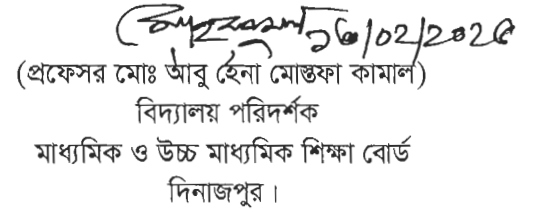 ১৩/০2/২০২৫
(প্রফেসর মোঃ আবু হেনা মোস্তফা কামাল)
বিদ্যালয় পরিদর্শক
মাধ্যমিক ও উচ্চ মাধ্যমিক শিক্ষা বোর্ড
দিনাজপুর।